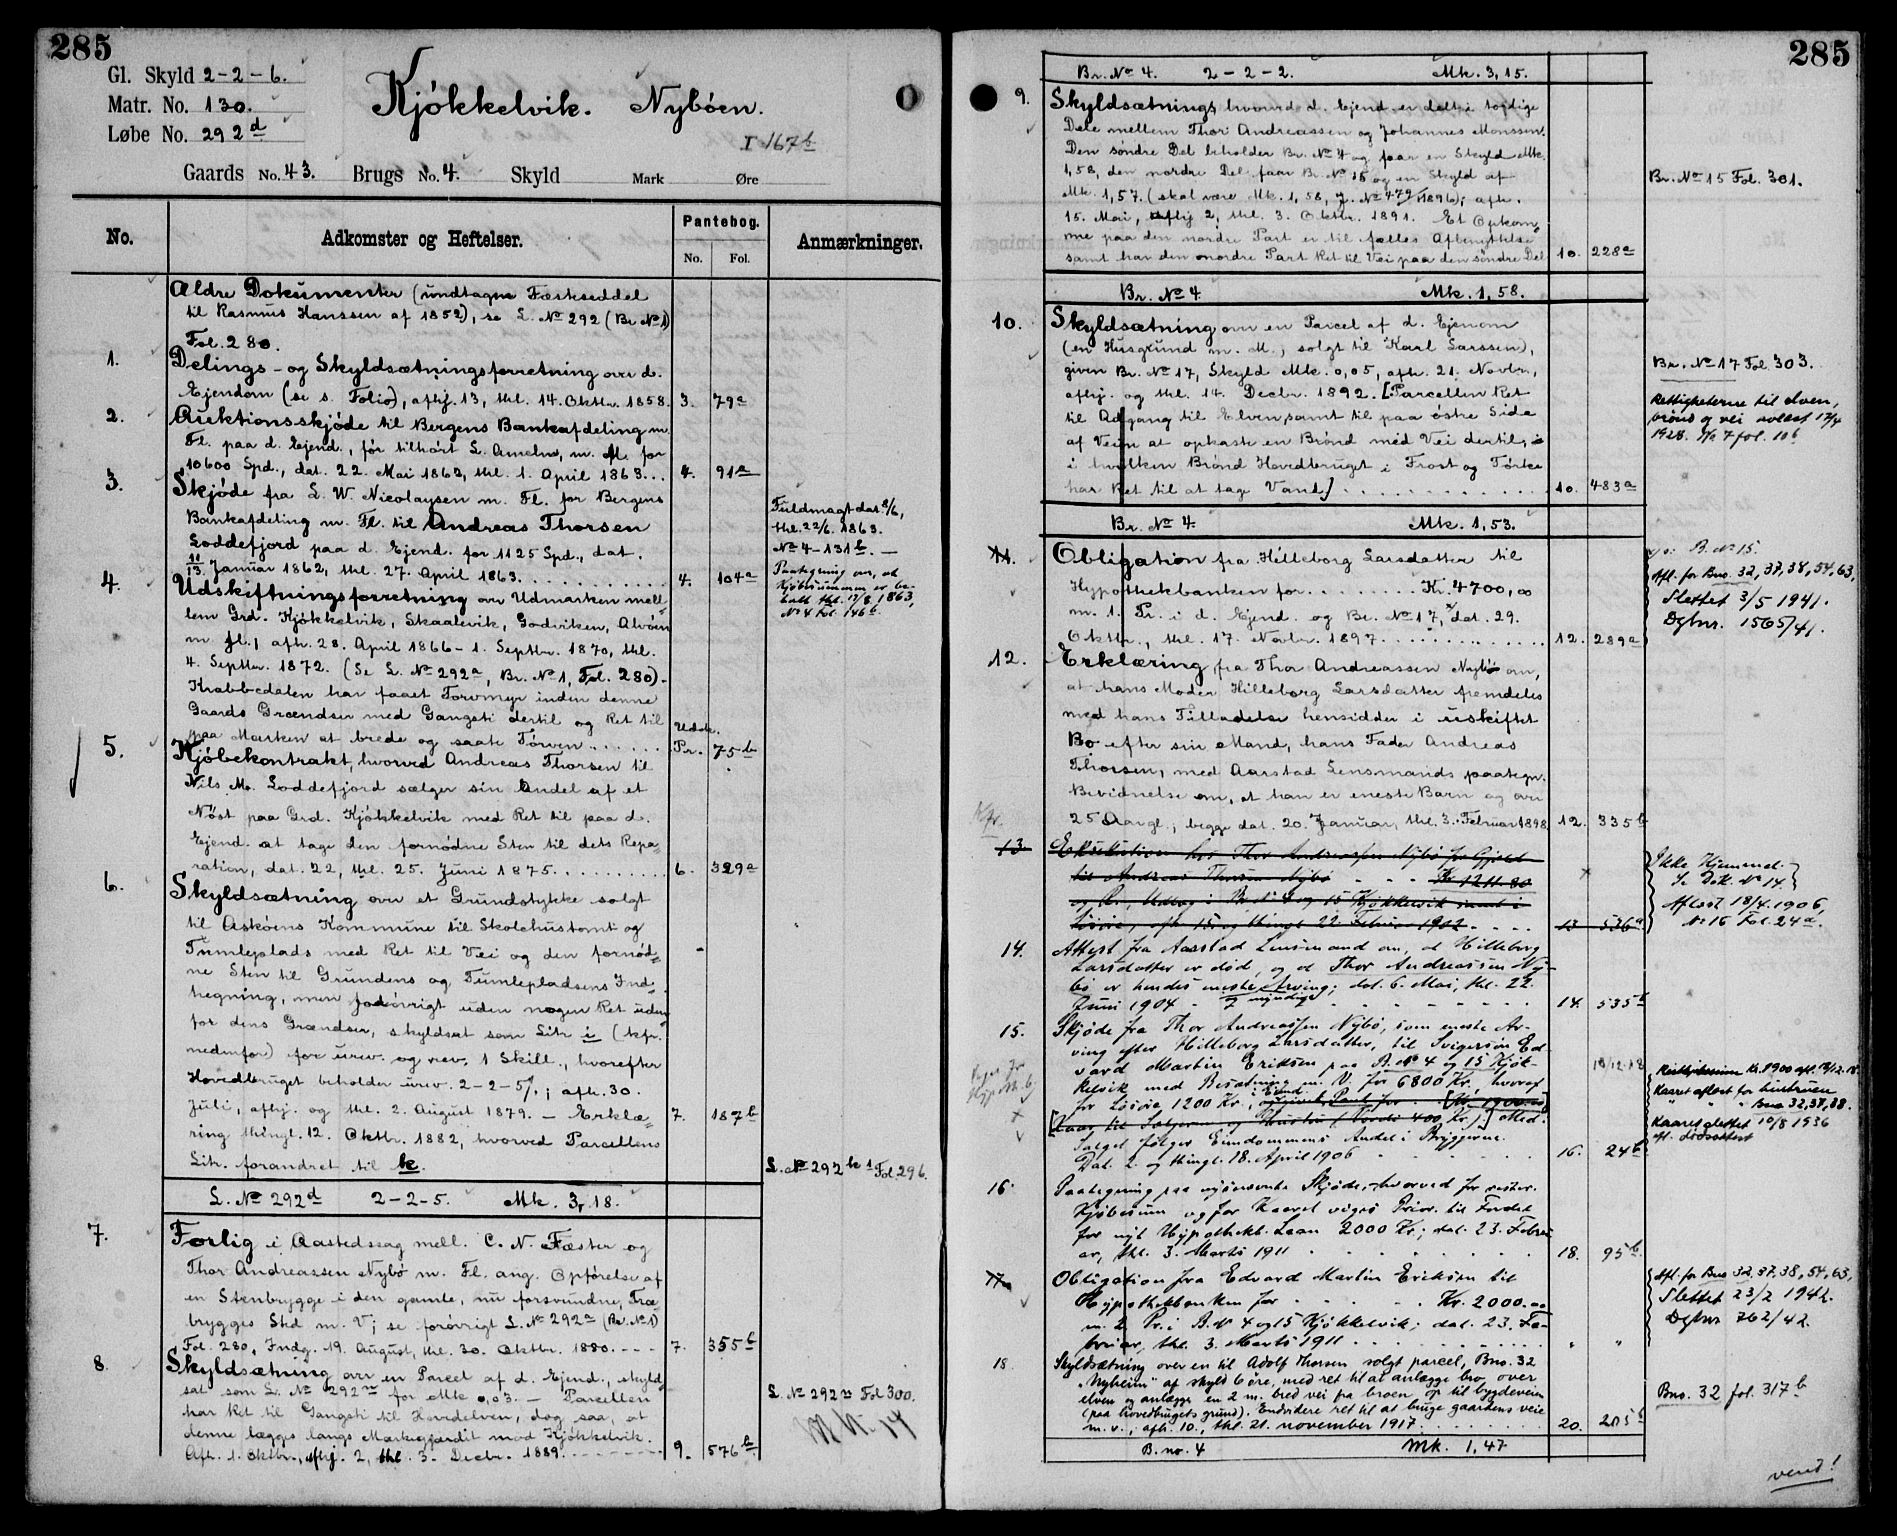 285
Gl. Skyld 2-2-6.
Matr. No. 130.
Løbe No. 292d
Kjökkelvik. Nyböen.
0
I 167b
Gaards No. 43. Brugs No. 4. Skyld Mark Øre
No. Adkomster og Heftelser. Pantebog. No. Fol. Anmærkninger.
Ældre Dokumenter (undtagen Fæsteseddel
til Rasmus Hanssen af 1852), se L. No 292 (Br. No 1)
Fol. 280.
1. Delings- og Skyldsætningsforretning over d.
Ejendom (se s. Folio), afhj. 13, thl. 14. Oktbr. 1858. 3. 79a
2. Auktionsskjöde til Bergens Bankafdeling m.
Fl. paa d. Ejend., för tilhört L. Ameln, m. M. for
10600 Spd., dat. 22. Mai 1862, thl. 1. April 1863... 4. 91a
3. Skjöde fra L. W. Nicolaysen m. Fl. for Bergens
Bankafdeling m. Fl. til Andreas Thorsen
Loddefjord paa d. Ejend. for 1125 Spd., dat.
11/13 Januar 1862, thl. 27. April 1863. 4. 104a
Fuldmagt dat. 2/6,
thl. 22/6. 1863.
No 4-131b. —
Paategning om, at
Kjöbesummen er be-
talt thl. 17/8 1863,
No 4 Fol. 146b.
4. Udskiftningsforretning over Udmarken mel-
lem Grd. Kjökkelvik, Skaalevik, Godviken, Alvöen
m. fl., afh. 28. April 1866 - 1. Septbr. 1870, thl.
4. Septbr. 1872. (Se L. No 292a, Br. No 1, Fol. 280).-
Krabbedalen har faaet Torvmyr inden denne
Gaards Grændser med Gangsti dertil og Ret til
paa Marken at brede og saate Törven ...... Udsk. Pr. 75b
5. Kjöbekontrakt, hvorved Andreas Thorsen til
Nils M. Loddefjord sælger sin Andel af et
Nöst paa Grd. Kjökkelvik med Ret til paa d.
Ejend. at tage den fornödne Sten til dets Repa-
ration, dat. 22, thl. 25. Juni 1875. 6. 329a
6. Skyldsætning over et Grundstykke solgt
til Asköens Kommune til Skolehustomt og
Tumleplads med Ret til Vei og den fornöd-
ne Sten til Grundens og Tumlepladsens Ind-
hegning, men forövrigt uden nogen Ret uden-
for dens Grændser, skyldsat som Litr. i (kfr.
nedenfor) for urev. og rev. 1 Skill., hvorefter
Hovedbruget beholder urev. 2-2-5/.; afh. 30.
Juli, afhj. og thl. 2. August 1879. — Erklæ- 7. 187b
ring thingl. 12. Oktbr. 1882, hvorved Parcellens
Litr. forandret til k.
L. No 292k1 Fol. 296.
L. No 292d 2-2-5. Mk. 3,18.
7. Forlig i Aastedssag mell. C. N. Fæster og
Thor Andreassen Nybö m. Fl. ang. Opförelse af
en Stenbrygge i den gamle, nu forsvundne, Træ-
brygges Sted m. V; se forövrigt L. No 292a (Br. No 1)
Fol. 280, Indg. 19. August, thl. 30. Oktbr. 1880. --- 7. 355b
8. Skyldsætning over en Parcel af d. Ejend., skyld-
sat som L. No 292n for Mk 0,03. — Parcellen
har Ret til Gangsti til Hovedelven, dog saa, at
denne lægges langs Markegjærdit mod Kjökkelvik.
Afh. 1. Oktbr., afhj. 2, thl. 3. Decbr. 1889. 9. 576b
L. No 292n Fol 300.
285
Br. No 4. 2-2-2. Mk. 3,15.
9. Skyldsætning, hvorved d. Ejend. er delt i tvende
Dele mellem Thor Andreassen og Johannes Monssen.
Den söndre Del beholder Br. No 4 og faar en Skyld Mk.
1,58, den nordre Del faar Br. No 15 og en Skyld af
Mk. 1,57. (skal være Mk. 1,58, J. No 479/1896); afh.
15. Mai, afhj 2, thl. 3. Oktbr. 1891. Et Opkom-
me paa den nordre Part er til fælles Afbenyttelse
samt har den nordre Part Ret til Vei paa den söndre Del 10. 228a
Br. No 15 Fol. 301.
Br. No 4. Mk. 1,58.
10. Skyldsætning over en Parcel af d. Ejendom
(en Husgrund m. M., solgt til Karl Larssen),
given Br. No 17, Skyld Mk. 0,05, afh. 21. Novbr.,
afhj. og thl. 14. Decbr. 1892. [Parcellen Ret
til Adgang til Elven, samt til paa östre Side
af Veien at opkaste en Brönd med Vei dertil,
i hvilken Brönd Hovedbruget i Frost og Törke
har Ret til at tage Vand.] 10. 483a
Br. No 17 Fol. 303.
Rettigheterne til elven,
brönd og vei avlæst 17/4
1928. No 7 fol. 106
Br. No 4. Mk. 1,53.
11. Obligation fra Hilleborg Larsdatter til
Hypothekbanken for ........ Kr. 4700,00
m. 1. Pr. i d. Ejend. og Br. No 17, dat. 29.
Oktbr., thl. 17. Novbr. 1897. 12. 289a
B. No 15.
Afl. for Bno. 32, 37, 38, 54, 63,
Slettet 3/5 1941.
Dgbnr. 1565/41.
12. Erklæring fra Thor Andreassen Nybö om,
at hans Moder Hilleborg Larsdatter fremdeles
med hans Tilladelse hensidder i uskiftet
Bo efter sin Mand, hans Fader Andreas
Thorsen, med Aarstad Lensmands paategn.
Bevidnelse om, at han er eneste Barn og over
25 Aargl., begge dat. 20. Januar, thl. 3. Februar 1898. 12. 335b
Kfr.
13. Exekution hos Thor Andreassen Nybö for Gjæld
til Andreas Thorsen Nybö - - - Kr 1211.80
og O., Udlæg i Br No 4 og 15 Kjökkelvik samt i
Lösöre, afh. 15. og thingl. 22. Februar 1902. 13 536a
Ikke Hjemmel.
Se Dok. No 14.
Aflæst 18/4.1906,
No 16 Fol. 24a.
14. Attest fra Aarstad Lensmand om, at Hilleborg
Larsdatter er död, og at Thor Andreassen Ny-
bö er hendes eneste myndige Arving; dat. 6. Mai, thl. 22.
Juni 1904 - 14. 535b
15. Skjöde fra Thor Andreassen Nybö, som eneste Ar-
ving efter Hilleborg Larsdatter, til Svigersön Ed-
vard Martin Eriksen paa B. No 4 og 15 Kjök-
kelvik med Besætning m. V, for 6800 Kr., hvoraf
for Lösöre 1200 Kr.; Eiend. og Pant for - [Kr. 1900.00
[Kaar til Sælgeren og Hustru (Værdi 400 Kr.)]. Med-
salget fölger Eiendommens Andel i Bryggerne.
Dat. 2. og thingl. 18. April 1906 16. 24b
Kr. 1900 afl. 19/12.18
Kaaret aflæst for
" " " Bno 32, 37, 38.
Kaaret slettet 10/8 1936
efl. dödsattest
16. Paategning paa nysnævnte Skjöde, hvorved for rester.
Kjöbesum og for Kaaret viges Prior. til Fordel
for nyt Hypothekb. Laan 2000 Kr.; dat. 23. Febru-
ar, thl. 3. Marts 1911 18. 95b.
17. Obligation fra Edvard Martin Eriksen til
Hypothekbanken for ..... Kr. 2000.00
m. 2. Pr. i B. No 4 og 15 Kjökkelvik; dat. 23. Fe-
bruar, thl. 3. Marts 1911 " "
Afl. for Bno 32, 37, 38, 54, 63,
Slettet 23/2 1942.
Dgbnr 762/42.
18. Skyldsætning over en til Adolf Thorsen solgt parcel, Bno. 32
"Nyheim" af skyld 6 öre, med ret til at anlægge bro over
elven og anlægge en 2 m. bred vei fra broen op til bygdeveien
(paa hovedbrugets grund). Endvidere ret til at bruge gaardens veie
m. v., afh. 10., thl. 21. november 1917. 20. 205b
Bno. 32 fol. 317b
B. no. 4 Mk. 1,47
vend!